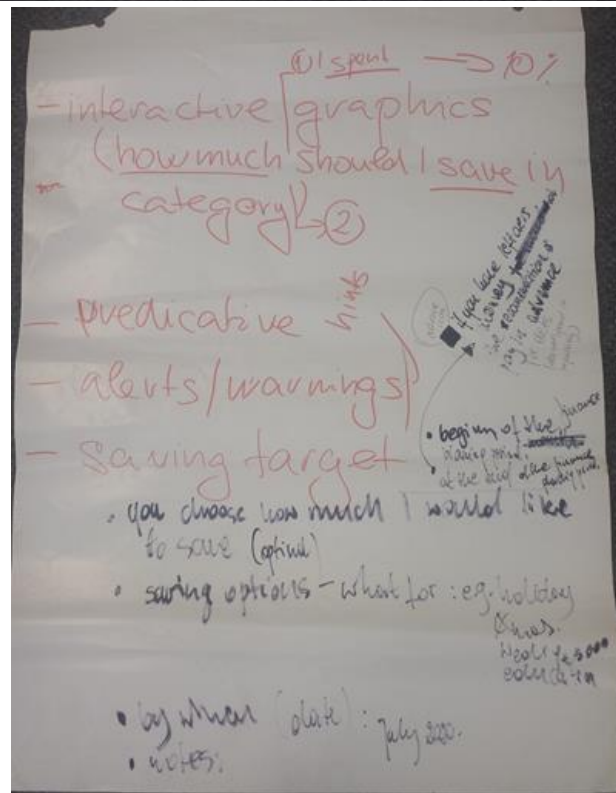 ① I spent → 10%
- interactive graphics
(how much should I save in
category) → ②
- predicative hints
- alerts/warnings
- saving target
■ if you have leftover
money
the recommendation is
pay in advance
• begining of the finance
• at the end of the finance
• you choose how much I would like
to save (optional)
• saving options - what for: eg. holiday
Xmas.
education
• by when (date): July 2020.
• notes: